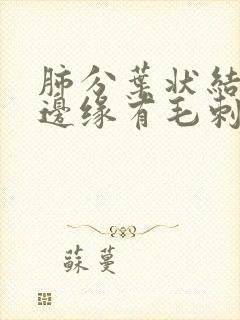 肺分葉狀結
邊緣有毛刺
蘇蔓